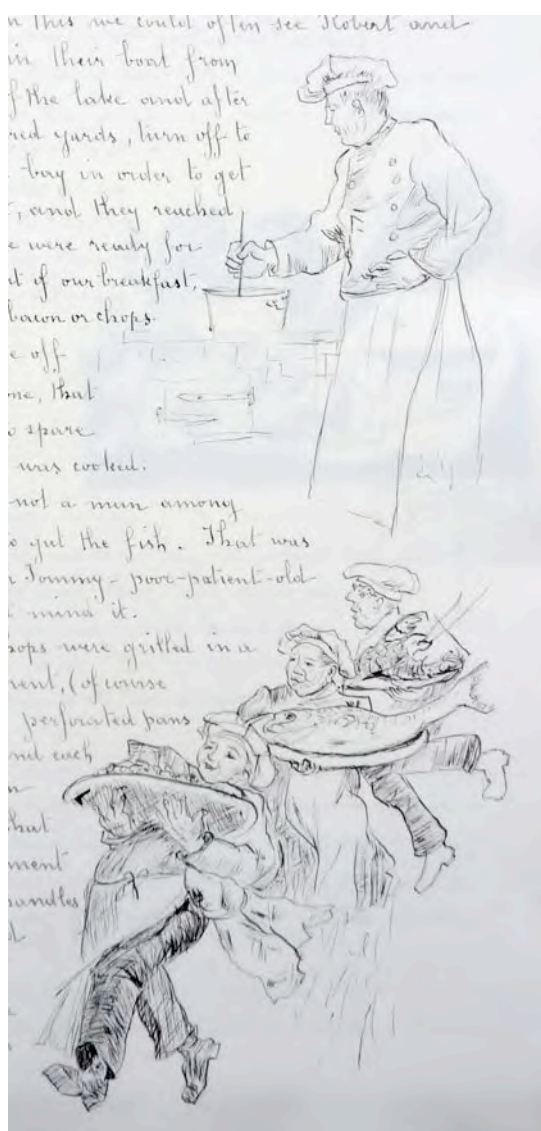 this we could often see Robert and
in their boat from
the lake and after
red yards, turn off to
bay in order to get
, and they reached
were ready for
of our breakfast,
bacon or chops.
off
that
spare
was cooked.
not a man among
gut the fish. That was
Tommy - poor-patient-old
mind it.
hops were grilled in a
ment, (of course
perforated pans
nd each
hat
ment
handles